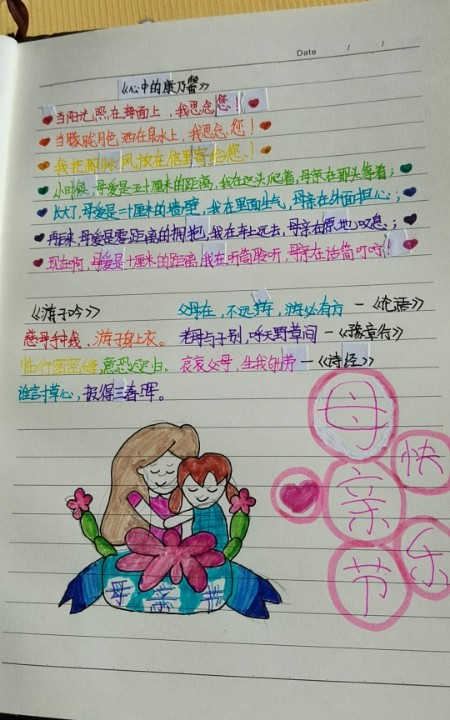 Date / /
《心中的康乃馨》
当阳光照在海面上，我思念您！
当朦胧月色洒在泉水上，我思念您！
我把 风放在信里寄给您！
小时候，母爱是五十厘米的距离，我在这头爬着，母亲在那头等着；
长大了，母爱是二十厘米的墙壁，我在里面生气，母亲在外面担心；
再后来，母爱是零距离的拥抱，我在车上远去，母亲在原地叹息；
现在啊，母爱是十厘米的距离，我在听筒聆听，母亲在话筒叮咛！
《游子吟》 父母在，不远游，游必有方 —《论语》
慈母手中线，游子身上衣。 老母与子别，呼天野草间 —《豫章行》
临行密密缝，意恐迟迟归。 哀哀父母，生我劬劳 —《诗经》
谁言寸草心，报得三春晖。
母亲节快乐
母亲节